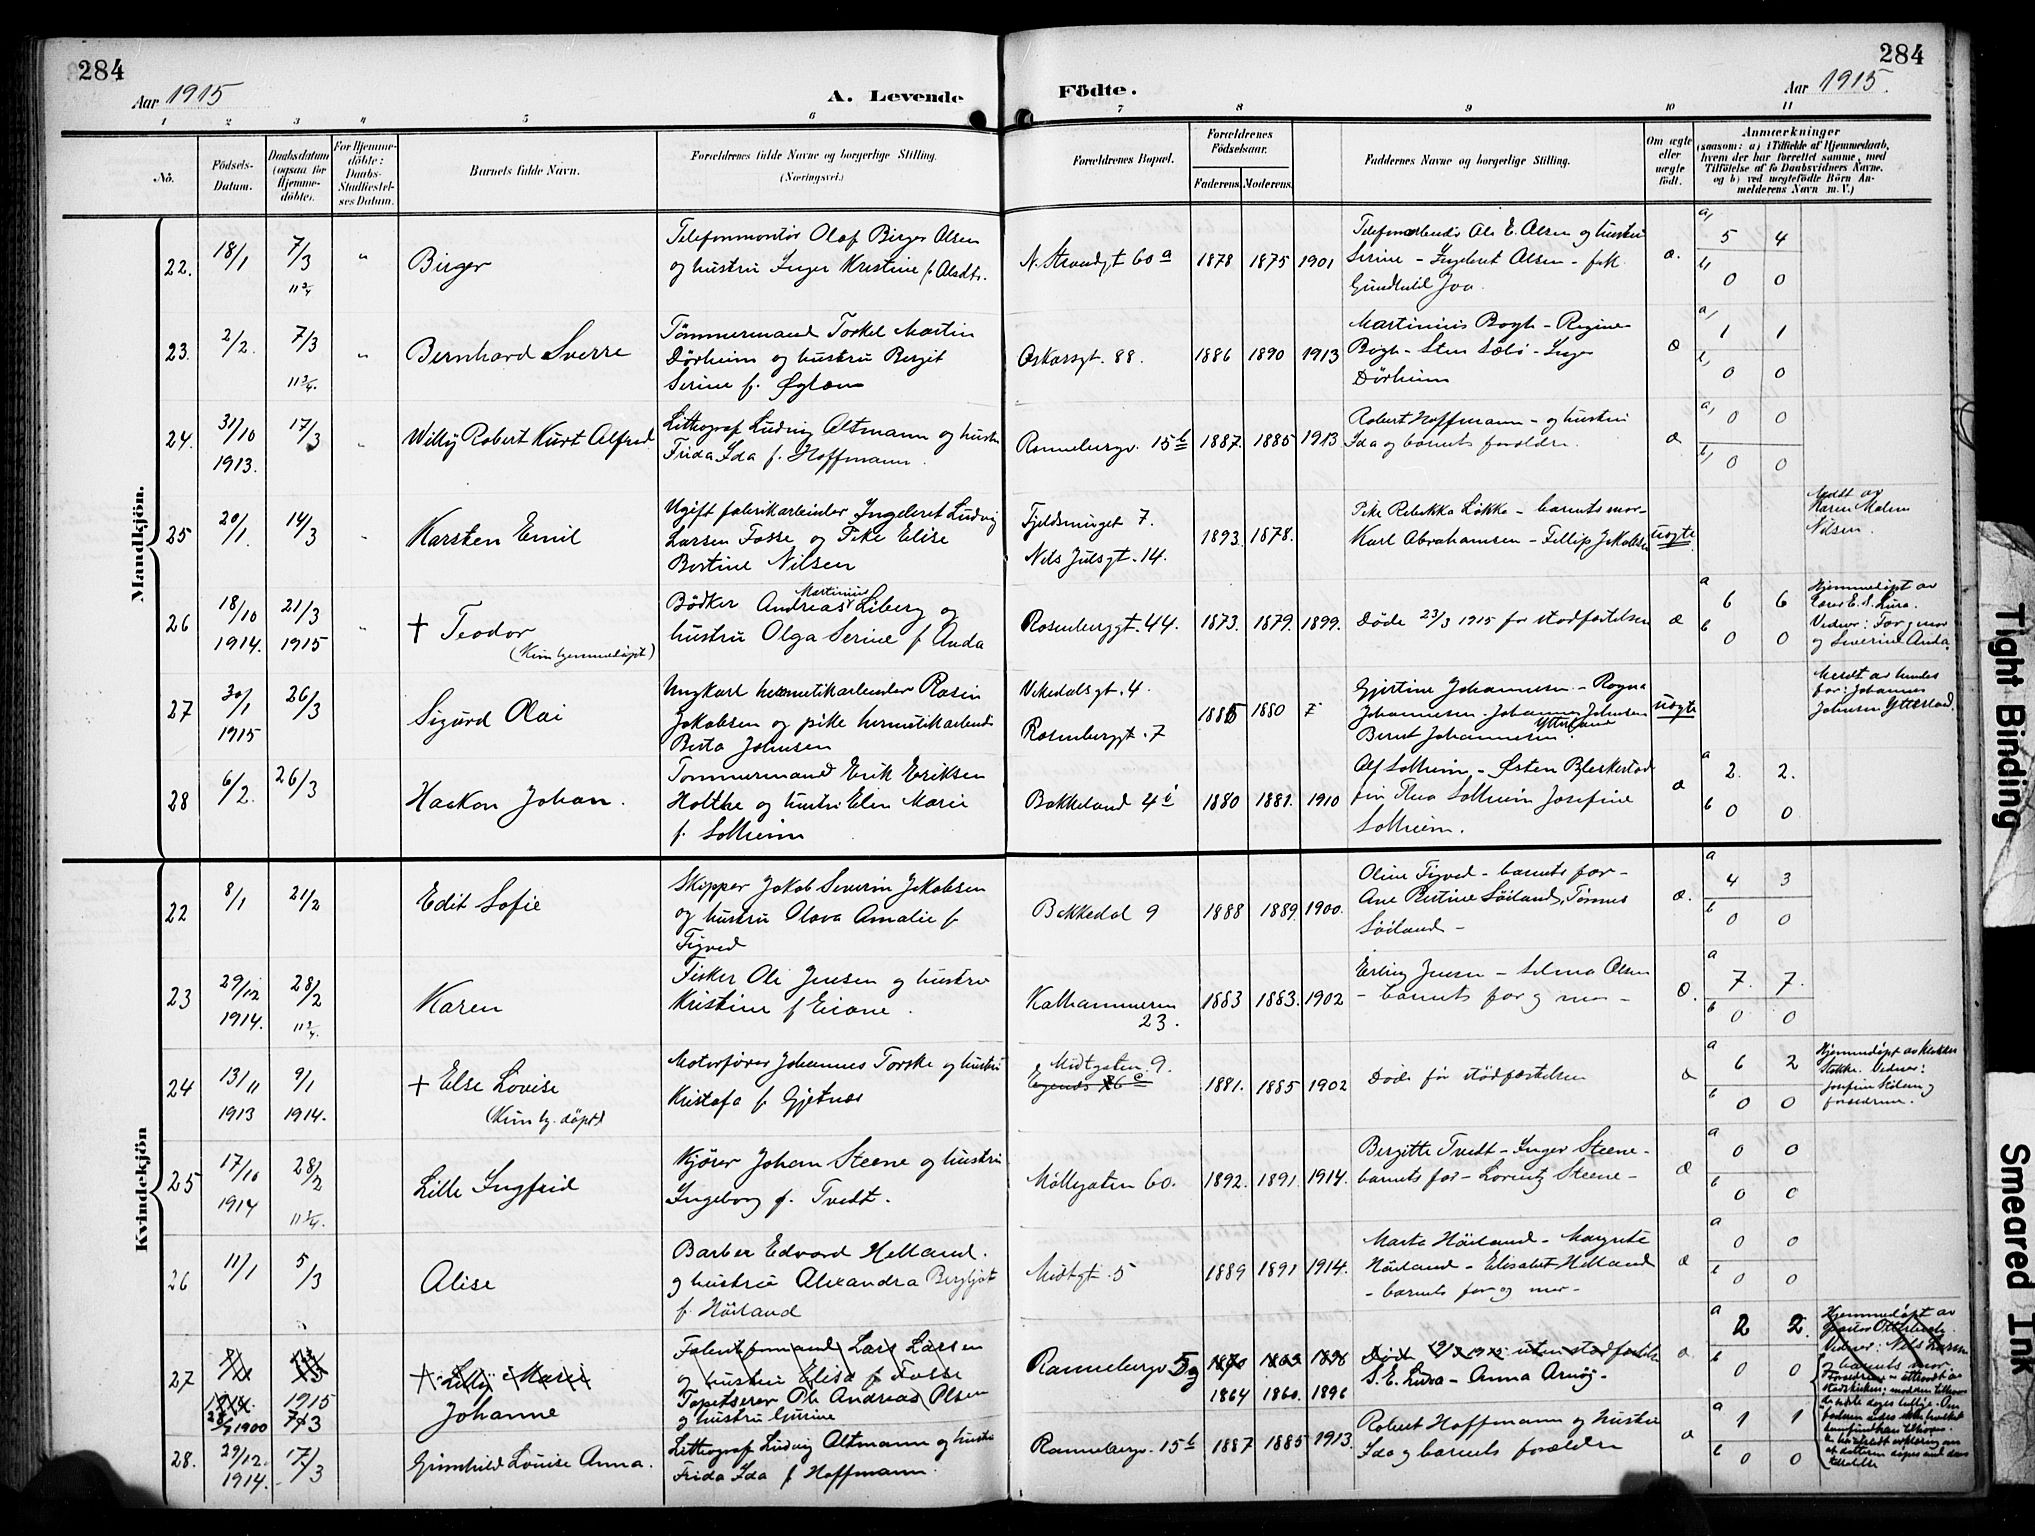 284
Aar 1915
A. Levende
Födte.
284
Aar 1915.
1 2 3 4 5 6 7 8 9 10 11
No.
Födsels-
Datum.
Daabsdatum
(ogsaa for
Hjemme-
döbte).
For Hjemme-
döbte:
Daabs-
Stadfæstel-
ses Datum.
Barnets fulde Navn.
Forældrenes fulde Navne og borgerlige Stilling.
(Næringsvei.)
Forældrenes Bopæl.
Forældrenes
Födselsaar.
Faderens. Moderens.
Faddernes Navne og borgerlige Stilling.
Om ægte
eller
uægte
födt.
Anmærkninger
(saasom: a) i Tilfælde af Hjemmedaab,
hvem der har forrettet samme, med
Tilföielse af to Daabsvidners Navne,
og b) ved uægtefödte Börn An-
melderens Navn m. V.)
Mandkjön.
22. 18/1 7/3 " Birger
Telefonmontör Olaf Birger Olsen
og hustru Inger Kristine f.
N. Strandgt 60 a 1878 1875 1901
Ole E. Olsen og hustru
Serine - Ingebret Olsen - frk.
Gundhild Joa.
æ. a, 5 4 b, 0 0
23. 2/2. 7/3 " Bernhard Sverre
Tömmermand Torkel Martin
Dörheim og hustru Bergit
Serine f.
Oskarsgt. 88. 1886 1890 1913
Martinius Bogh - Regine
Bogh - Sten Sæbö - Inger
Dörheim
æ a, 1 1 b, 0 0
24. 31/10 1913. 17/3 " Willy Robert Kurt Alfred
Lithograf Ludvig Altmann og hustru
Frida Ida f. Hoffmann.
Rannebergv. 15 b 1887. 1885 1913
Robert Hoffmann - og hustru
Ida og barnets forældre.
æ a, 0 0 b, 0 0
25 20/1. 14/3 " Karsten Emil
Ugift fabrikarbeider Ingebret Ludvig
Larsen Fosse og Pike Elise
Bertine Nilsen
Fjeldsmuget 7.
Nils Julsgt. 14.
1893. 1878.
Pike Rebekka Lökke - barnets mor -
Karl Abrahamsen - Fillip Jakobsen
uægte
Meldt av
Karen Malene
Nilsen.
26 18/10 1914. 21/3 1915 " † Teodor
(Kun hjemmedöpt)
Martinius
Bödker Andreas Liberg og
hustru Olga Serine f. Anda
Rosenberggt. 44. 1873. 1879. 1899.
Döde 23/3 1915 för stadfæstelsen
æ a 6 6 b 0 0
Hjemmedöpt av
Lærer E. S. Lura.
Vidner: Far og mor
og Severine Anda.
27 30/1 1915 26/3 Sigurd Olai
Ungkarl hermetikarbeider Rasin
Jakobsen og pike hermetikarbeid.
Berta Johnsen
Vikedalsgt. 4.
Rosenberggt. 7
1885 1880
Gjertine Johannesen - Ragna
Johannesen - Johannes Johnsen
Ytterland
Bernt Johannesen.
uægte
Meldt av hendes
far: Johannes
Johnsen Ytterland.
28 6/2. 26/3 Haakon Johan.
Tommermand Erik Eriksen
Holthe og hustru Elen Marie
f. Solheim
Bakkeland 4 1880 1881. 1910
Alf Solheim - Østen Bleskestad
frk Thea Solheim Josefine
Solheim.
æ a 2. 2. b 0 0
Kvindekjön
22 8/1 21/2 Edit Sofie
Skipper Jakob Severin Jakobsen
og hustru Olava Amalie f.
Tigved
Bakkedal 9 1888 1889. 1900.
Oline Tigved - barnets far -
Ane Ristine Söiland, Tönnes
Söiland -
æ. a 4 3 b 0 0
23 29/12 1914. 28/2 Karen
Fisker Ole Jensen og hustru
Kristine f. Eiane.
Kalhammeren
23.
1883 1883. 1902
Erling Jensen - Selma Olsen
- barnets far og mor -
æ. a 7. 7. b 0 0
24 13/11 1913 9/1 1914. † Else Lovise
(Kun hj. döpt)
Motorförer Johannes Torske og hustru
Kristofa f. Gjetnes
Midtgaten 9.
1881. 1885 1902
Döde för stadfæstelsen
æ a 6 2 b 0 0
Hjemmedöpt av klokker
Stokke. Vidner:
og
forældrene.
25 17/10 1914 28/2 Lille Ingfrid
Kjörer Johan Steene og hustru
Ingeborg f. Tvedt.
Möllegaten 60. 1892. 1891. 1914.
Bergitte Tvedt - Inger Steene -
barnets far - Lorentz Steene -
æ a 0 0 b 0 0
26 11/1 5/3 Alise
Barber Edvard Helland.
og hustru Alexandra Bergljot
f. Höiland
Midtgt. 5 1889 1891 1914.
Marta Höiland - Margrete
Höiland - Elisabet Helland
- barnets far og mor -
æ a 0 0 b 0 0
27 1914. 28/ 1900 1915 7/3 † Lilly Marie
Johanne
Fabrikformand Lars Larsen
og hustru Elisa f. Fosse
Tapetserer Ole Andreas Olsen
og hustru Gurine
Rannebergv. 1870 1869 1898
1864 1860. 1896
Döde uten stadfæstelse
S. E. Lura - Anna Arnög -
æ a 2 2 b 0 0
Hjemmedöpt av
Vidner: Nils Larsen
og barnets mor.
28. 29/12. 1914. 17/3 Grimhild Louise Anna.
Lithograf Ludvig Altmann og hustru
Frida Ida f. Hoffmann.
Rannebergv. 15 b 1887 1885 1913.
Robert Hoffmann og hustru
Ida og barnets forældre
æ a 1 1 b 0 0
Tight Binding
Smeared Ink